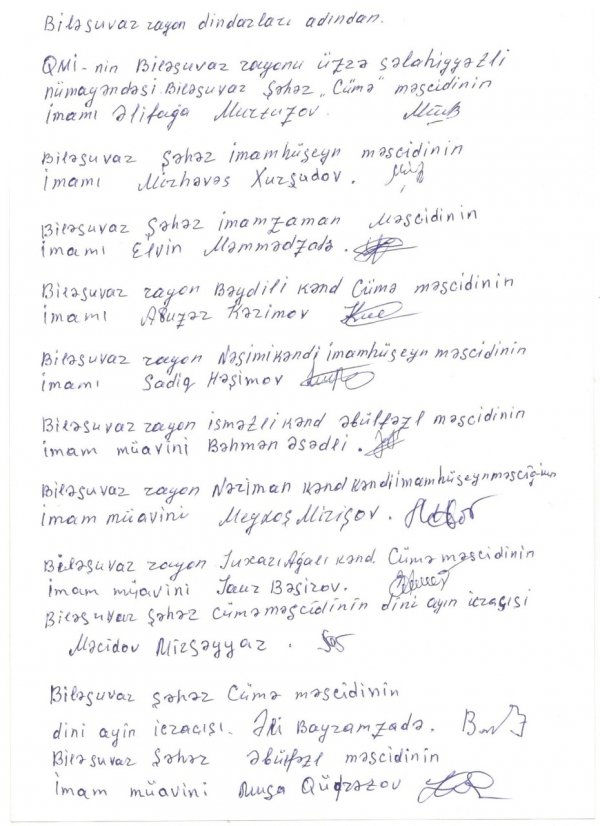 Biləsuvar rayon dindarları adından.
QMİ-nin Biləsuvar rayonu üzrə səlahiyyətli
nümayəndəsi Biləsuvar Şəhər "Cümə" məscidinin
imamı Əlifağa Murtuzov.
Biləsuvar Şəhər imamhüseyn məscidinin
İmamı Mirhəvəs Xurşudov.
Biləsuvar Şəhər imamzaman Məscidinin
imamı Elvin Məmmədzadə.
Biləsuvar rayon Bəydili kənd Cümə məscidinin
imamı Abuzər Kərimov
Biləsuvar rayon Nəsimikəndi imamhüseyn məscidinin
imamı Sadiq Həşimov
Biləsuvar rayon ismətli kənd əbülfəzl məscidinin
imam müavini Bəhmən əsədli.
Biləsuvar rayon Nəriman kənd kəndi imamhüseyn
imam müavini Mirişov.
Biləsuvar rayon Yuxarı Ağalı kənd. Cümə məscidinin
imam müavini Taur Bəşirov.
Biləsuvar Şəhər Cümə məscidinin dini ayin icraçısı
Məcidov Mirşəyyar.
Biləsuvar şəhər Cümə məscidinin
dini ayin icraçısı. Əli Bayramzadə.
Biləsuvar Şəhər əbülfəzl məscidinin
İmam müavini Musa